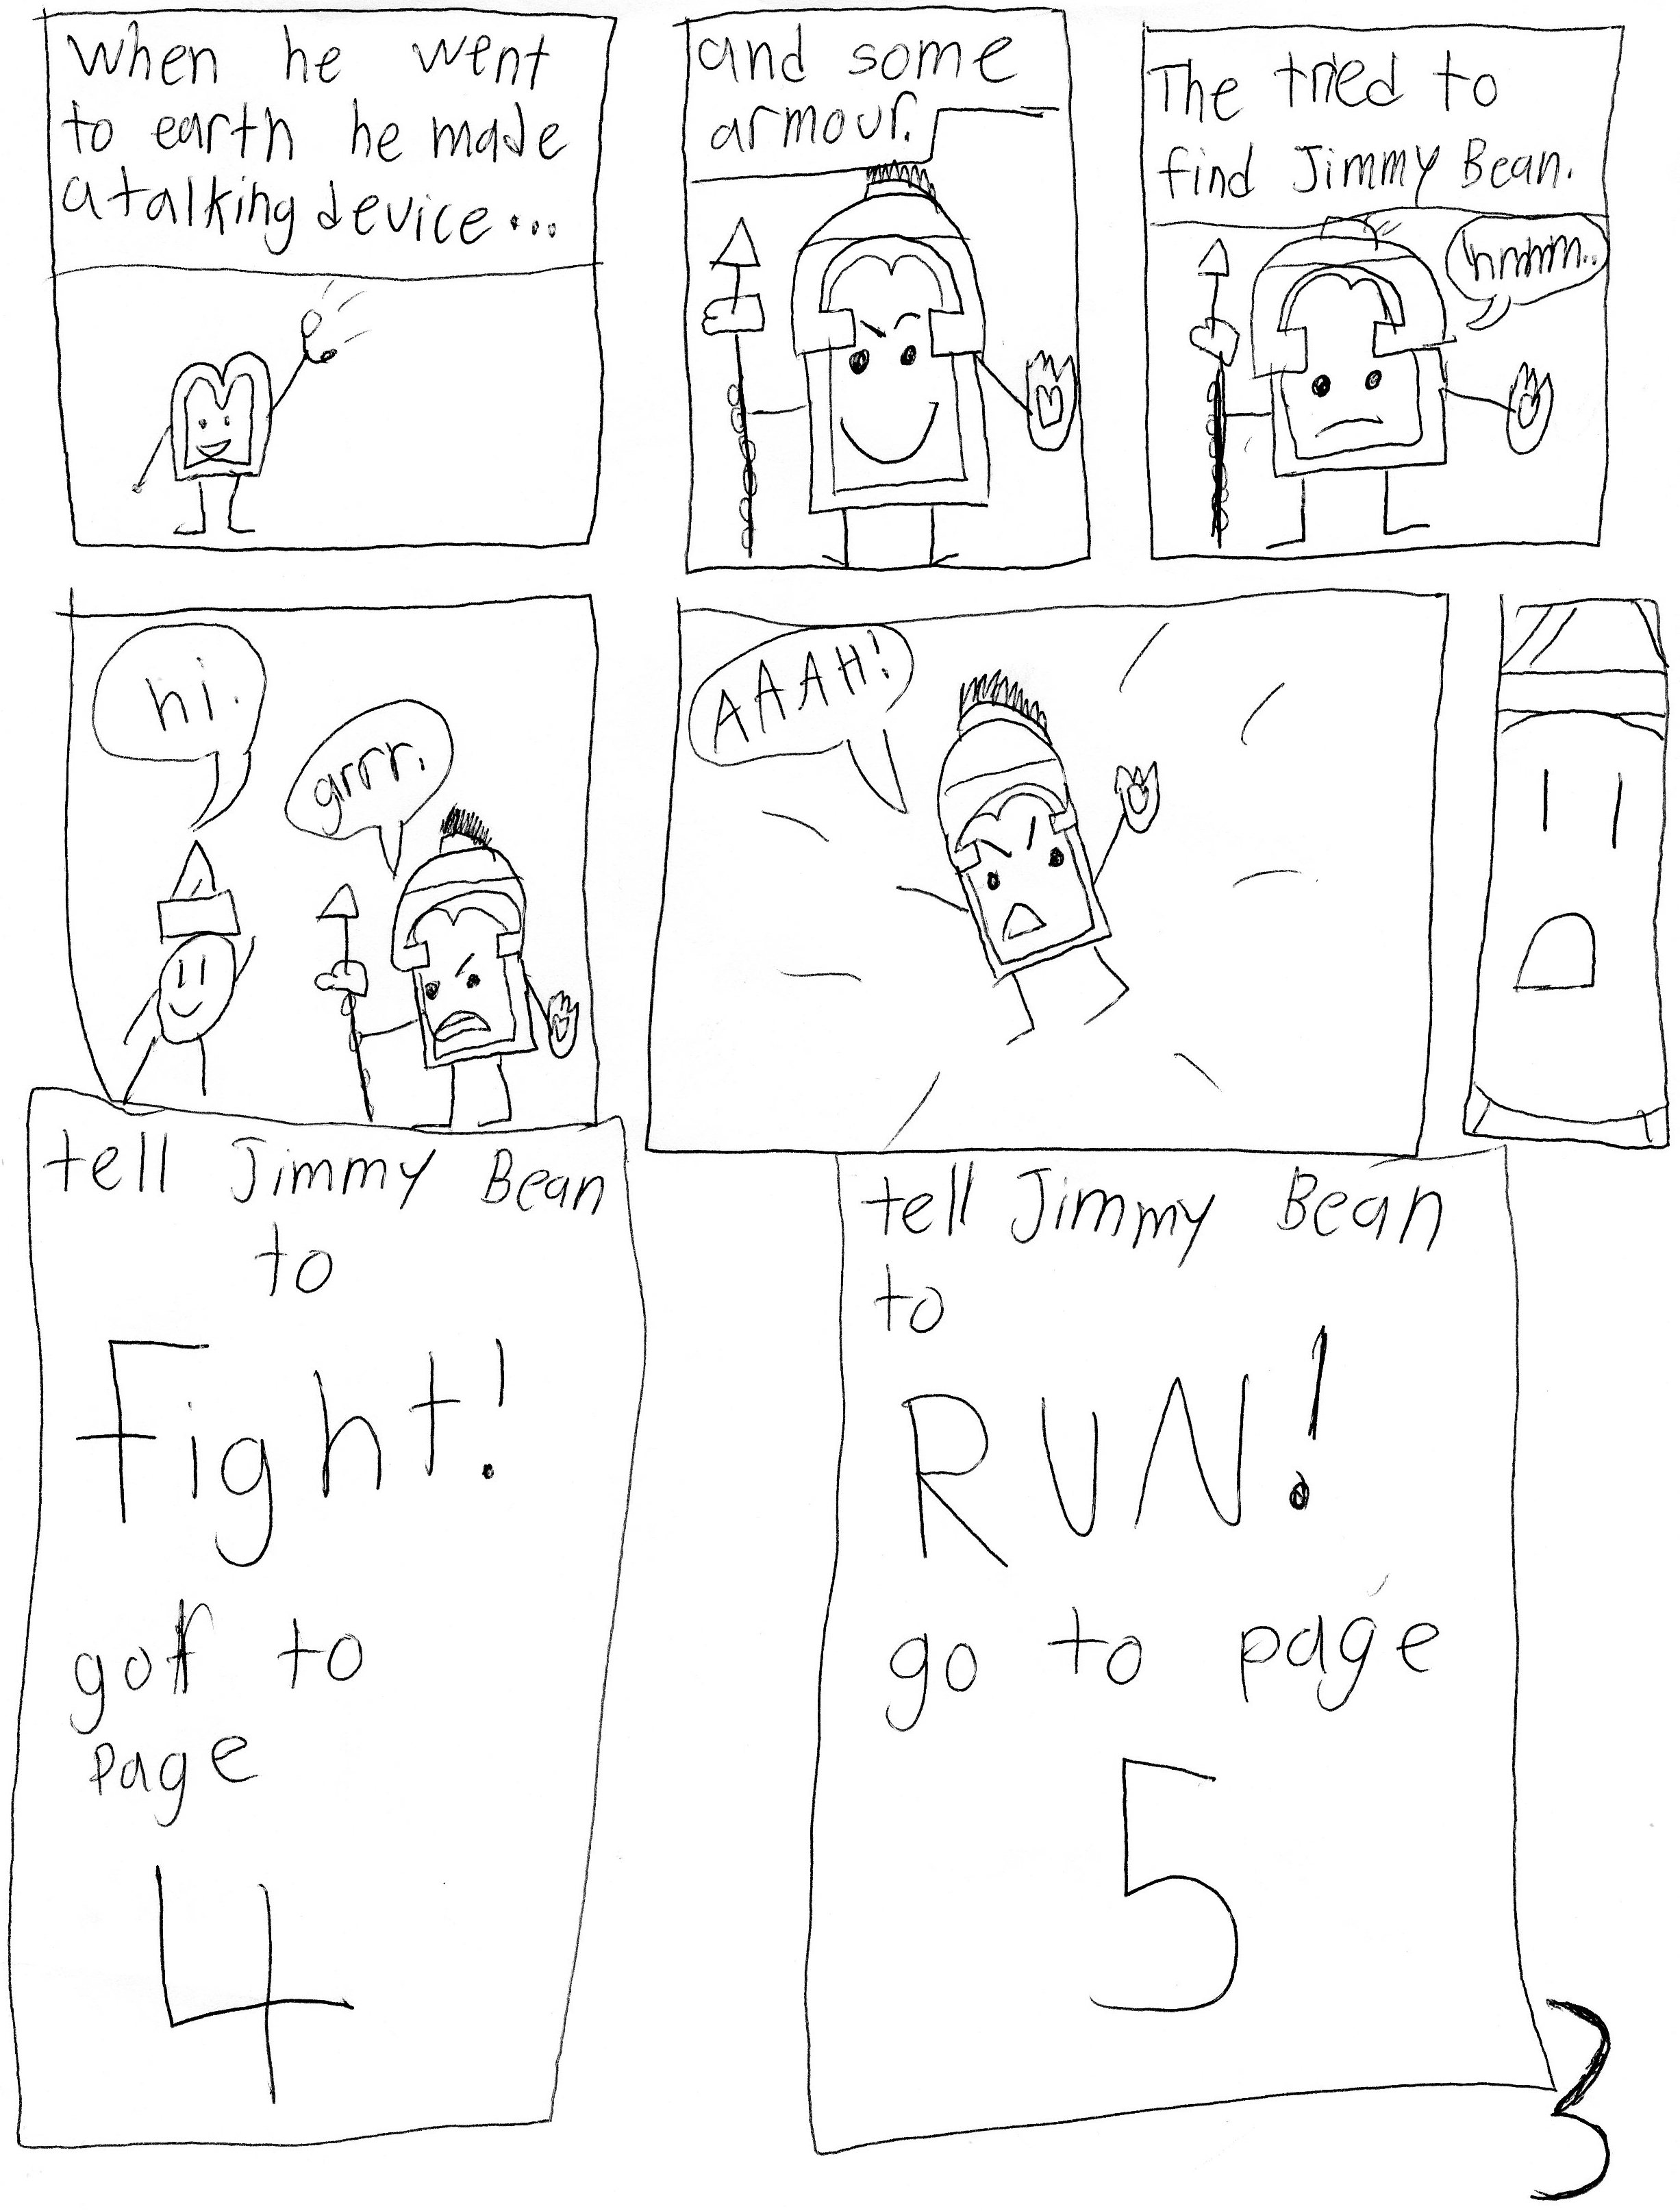 When he went
to earth he made
a talking device...
and some
armour.
The tried to
find Jimmy Bean.
hmmm..
hi.
grrr.
AAAH!
tell Jimmy Bean
to
Fight!
to
page
4
tell Jimmy Bean
to
RUN!
go to page
5
3